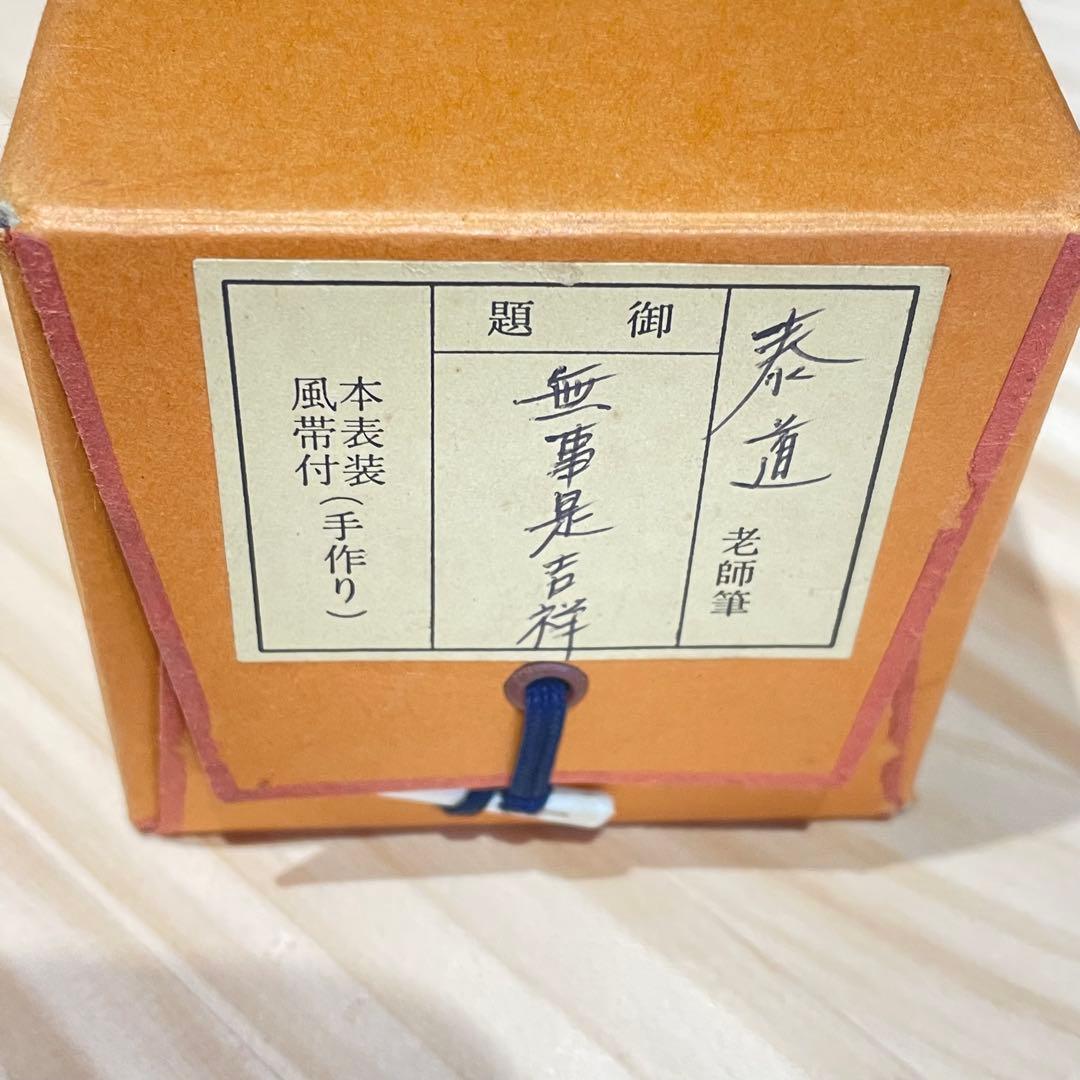 泰道
老師筆
御題
無事是吉祥
本表装
風帯付(手作り)